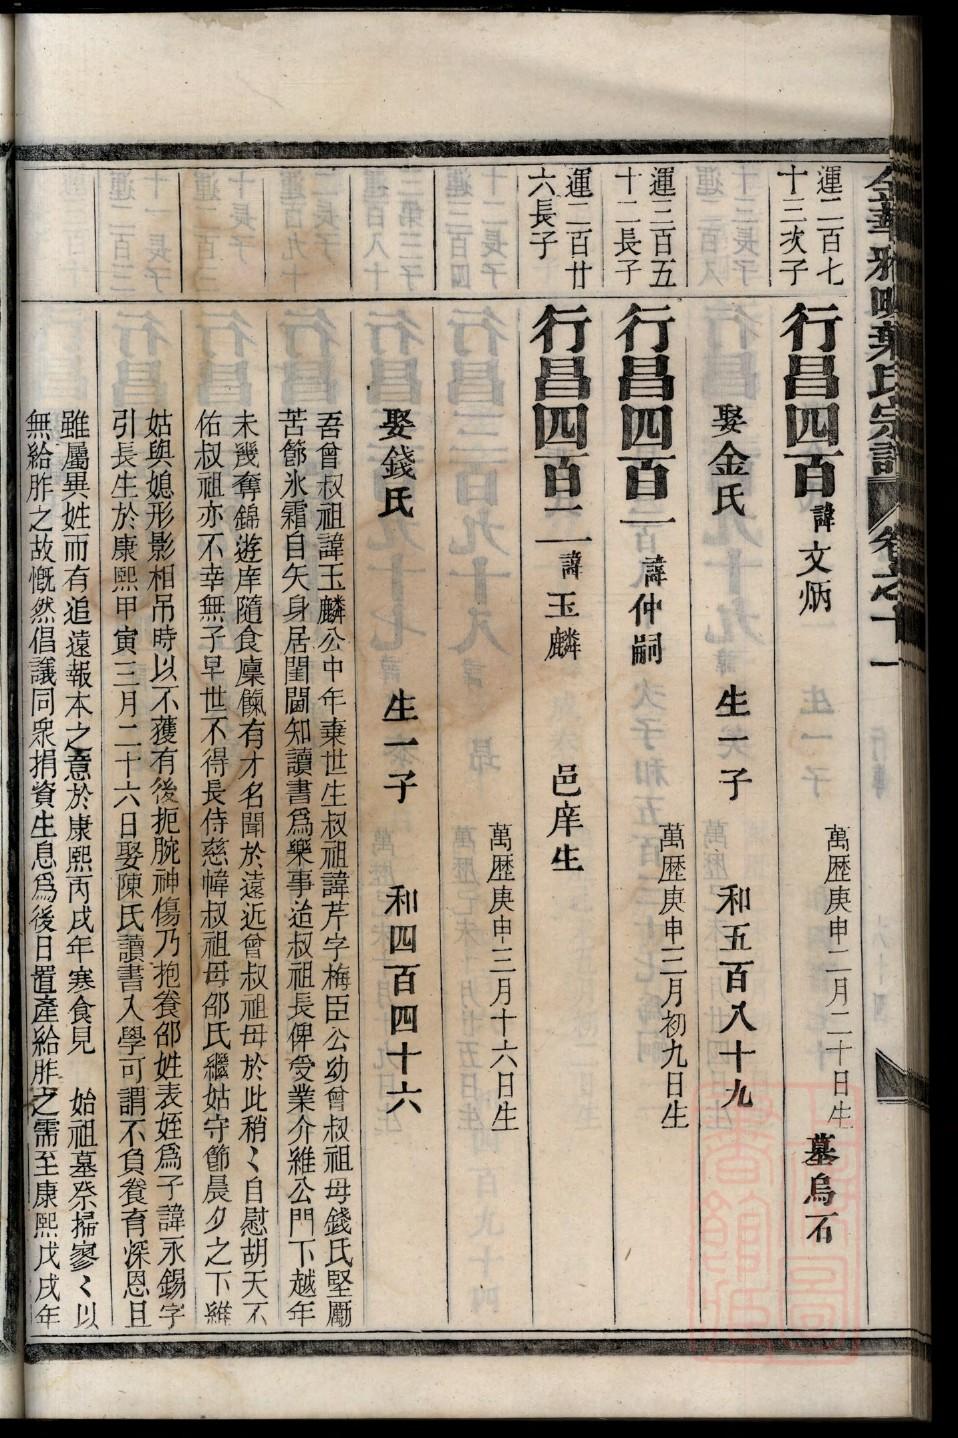 金華雅畈葉氏宗譜 卷之十一
運二百七
十三次子
行昌四百 諱文炳 萬歷庚申二月二十日生 墓烏石
娶金氏 生一子 和五百八十九
運三百五
十二長子
行昌四百一 諱仲嗣 萬歷庚申三月初九日生
運二百廿
六長子
行昌四百二 諱玉麟 邑庠生
萬歷庚申三月十六日生
娶錢氏 生一子 和四百四十六
吾曾叔祖諱玉麟公中年棄世生叔祖諱芹字梅臣公幼曾叔祖母錢氏堅勵
苦節氷霜自矢身居閨閫知讀書爲樂事迨叔祖長俾受業介維公門下越年
未幾奪錦遊庠隨食廩餼有才名聞於遠近曾叔祖母於此稍〻自慰胡天不
佑叔祖亦不幸無子早世不得長侍慈幃叔祖母邵氏繼姑守節晨夕之下維
姑與媳形影相吊時以不獲有後扼腕神傷乃抱養邵姓表姪爲子諱永錫字
引長生於康熙甲寅三月二十六日娶陳氏讀書入學可謂不負養育深恩且
雖屬異姓而有追遠報本之意於康熙丙戌年寒食見 始祖墓祭掃寥〻以
無給胙之故慨然倡議同衆捐資生息爲後日置產給胙之需至康熙戊戌年